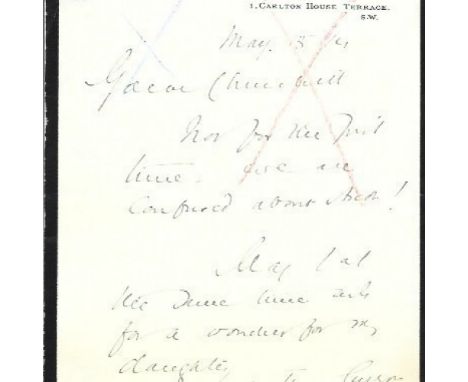 1, CARLTON HOUSE TERRACE.
S.W.
May 15
Churchill
Not for the first
time we are
confused about
May I at
the same time ask
for a voucher for my
daughter
Curzon